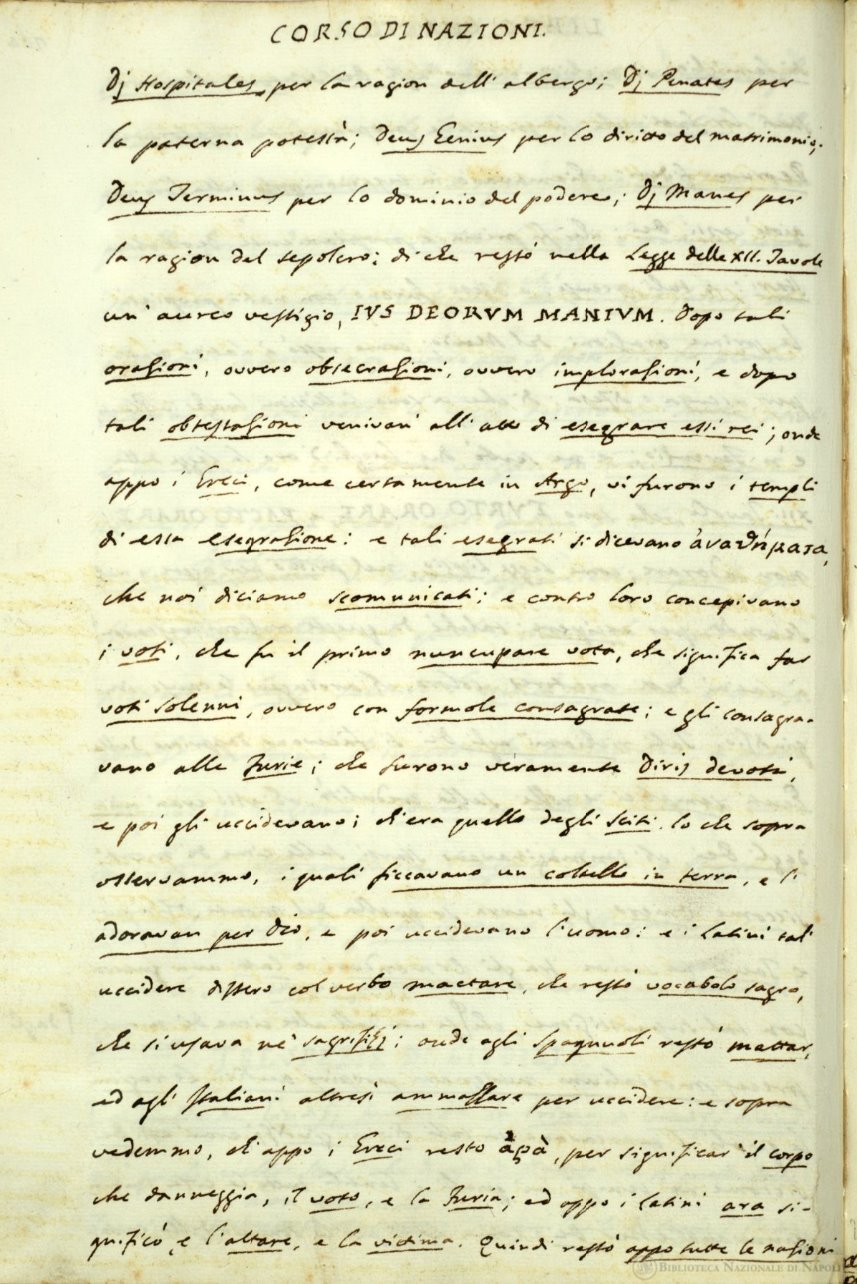 CORSO DI NAZIONI.
Dj Hospitales per la ragion dell' albergo; Dj Penates per
la paterna potestà; Deus Genius per lo diritto del matrimonio;
Deus Terminus per lo dominio del podere; Dj Manes per
la ragion del sepolcro: di che restò nella Legge delle XII. Tavole
un' aureo vestigio, IVS DEORVM MANIVM. Dopo tali
orazioni, ovvero obsecrazioni, ovvero implorazioni, e dopo
tali obtestazioni venivan' all' atto di esegrare essi rei; onde
appo i Greci, come certamente in Argo, vi furono i templi
di essa esegrazione: e tali esegrati si dicevano ἀναθήματα,
che noi diciamo scomunicati; e contro loro concepivano
i voti, che fu il primo nuncupare vota, che significa far
voti solenni, ovvero con formole consagrate; e gli consagra-
vano alle Furie; che furono veramente Diris devoti,
e poi gli uccidevano; ch'era quello degli Sciti, lo che sopra
osservammo, i quali ficcavano un coltello in terra, e l'
adoravan per Dio, e poi uccidevano l'uomo: e i Latini tal'
uccidere dissero col verbo mactare, che restò vocabolo sagro,
che si usava ne' sagrifizj; onde agli Spagnuoli restò mattar,
ed agli Italiani altresì ammazzare per uccidere: e sopra
vedemmo, ch'appo i Greci resto ἄρὰ, per significar' il corpo
che danneggia, il voto, e la Furia; ed appo i Latini ara si-
gnificò, e l'altare, e la vittima. Quindi restò appo tutte le nazioni
BIBLIOTECA NAZIONALE DI NAPOLI